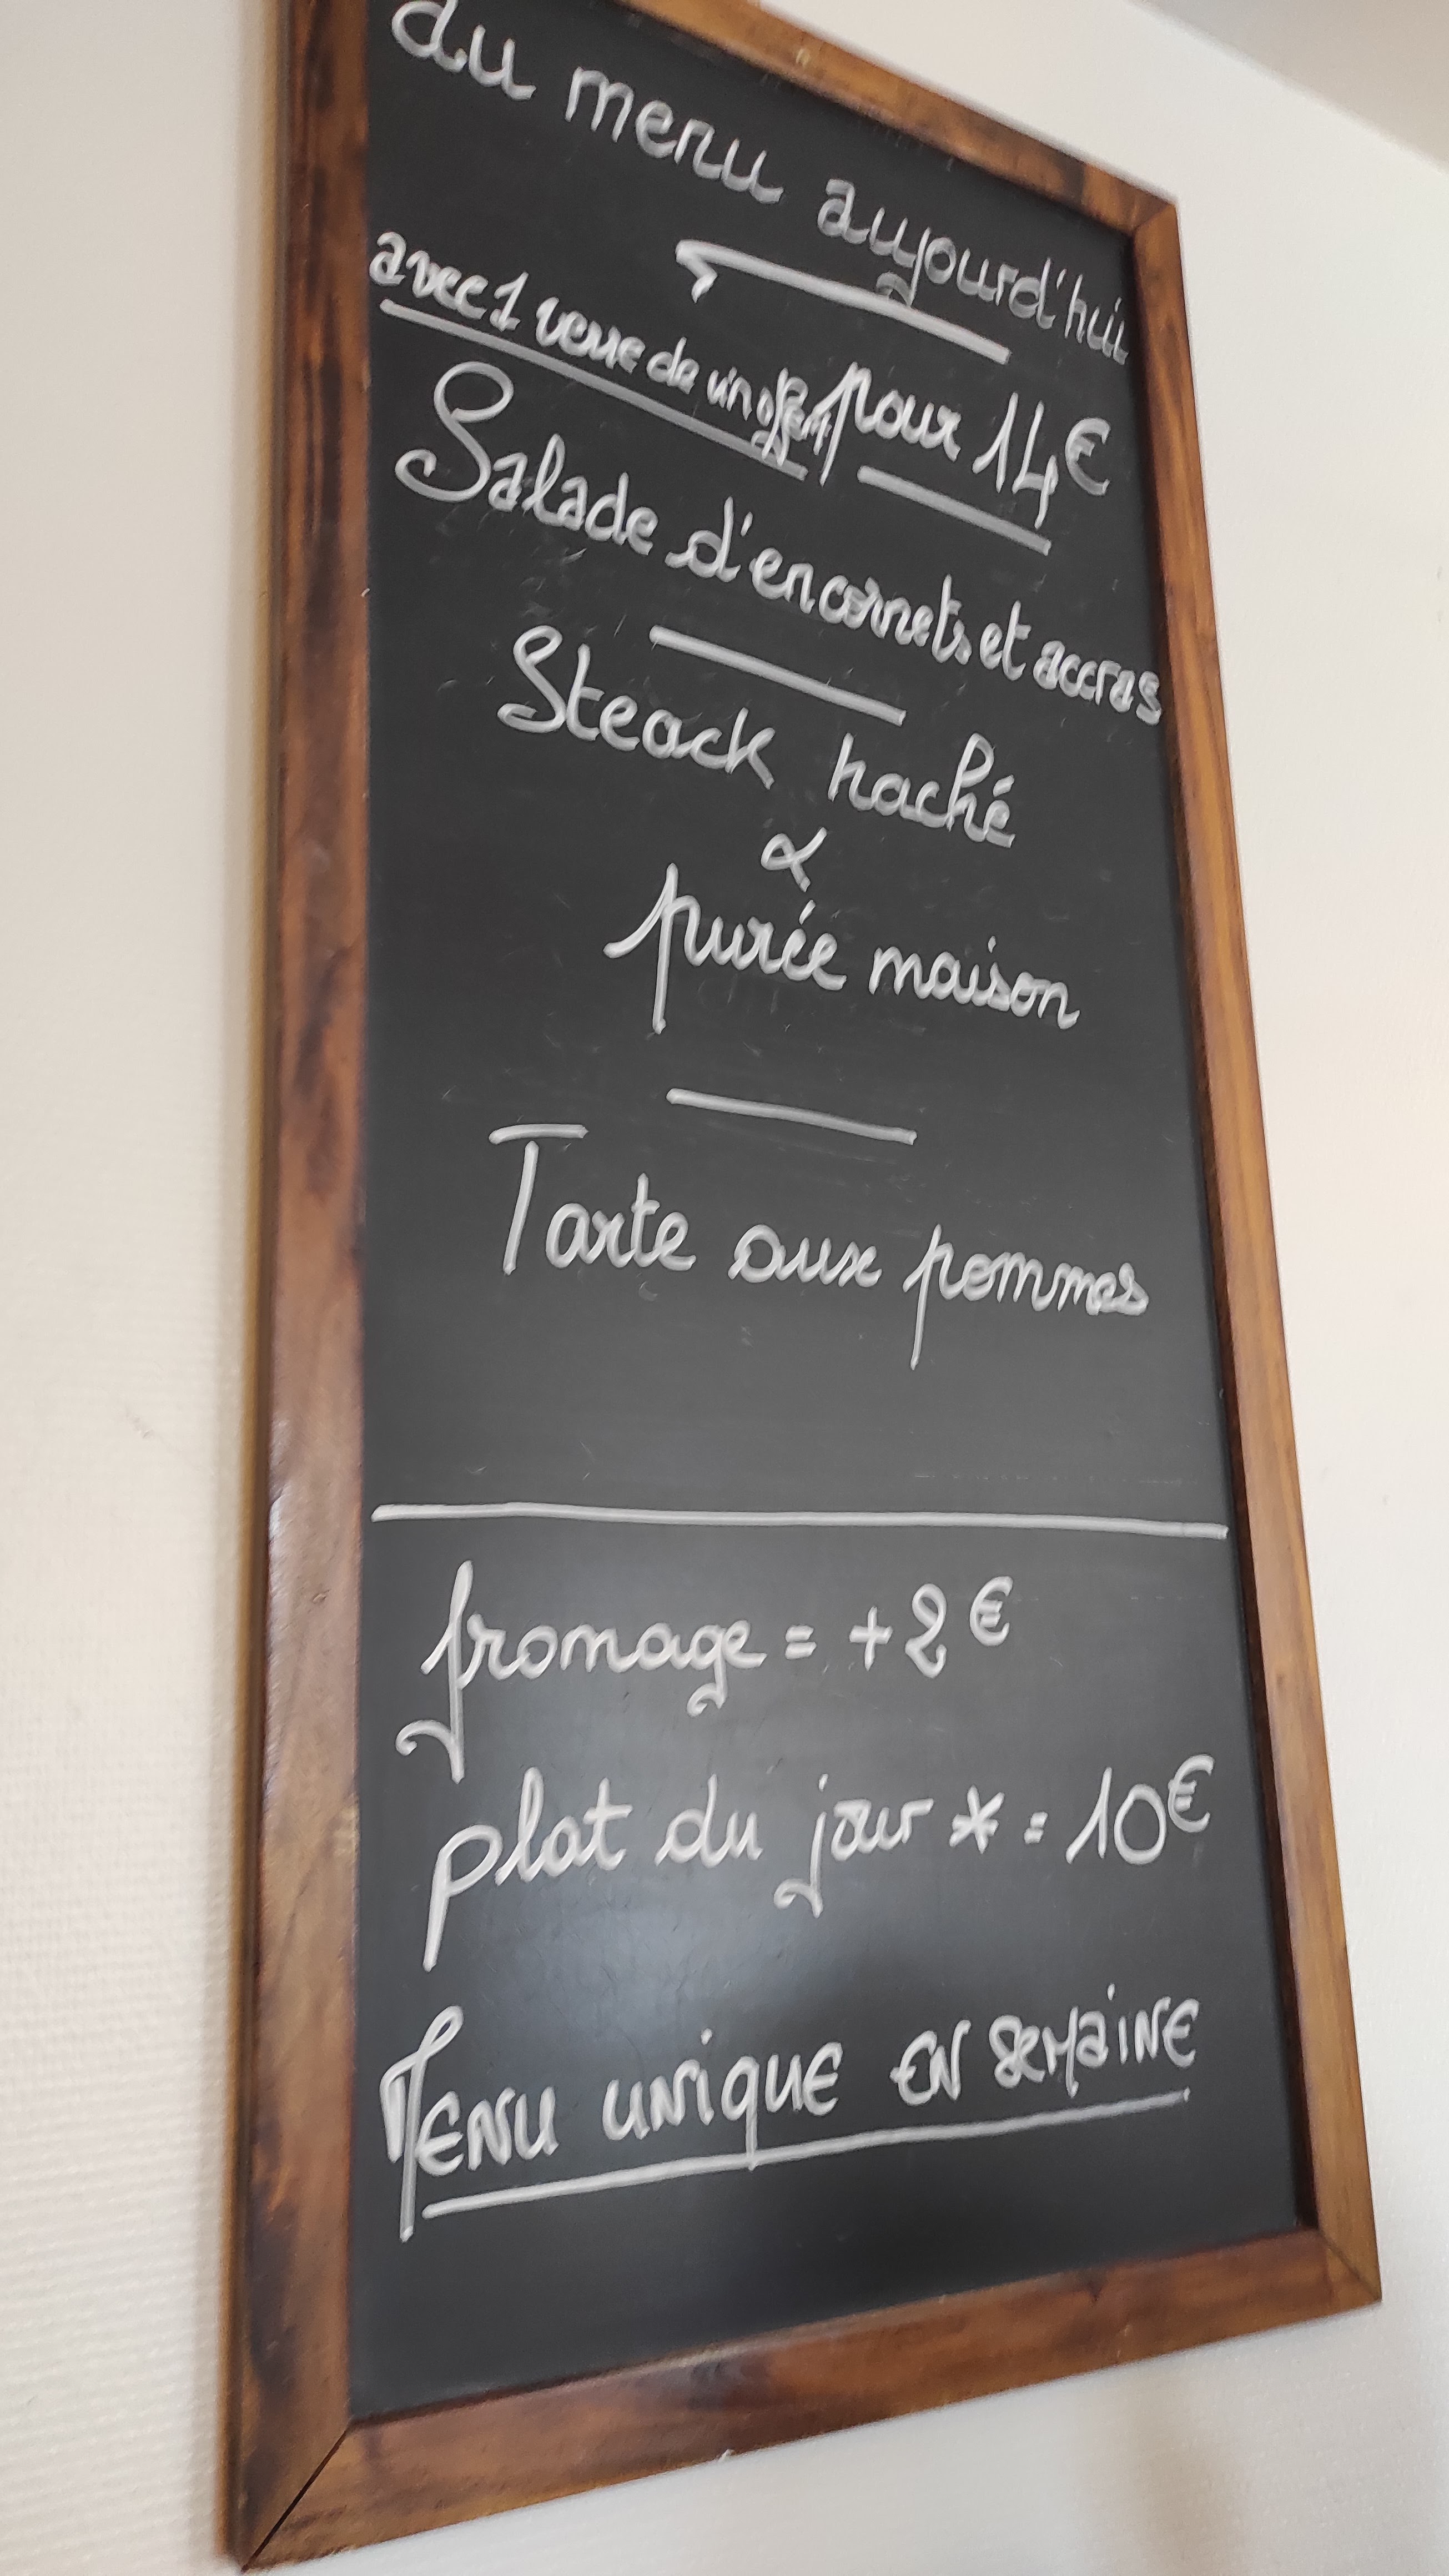 du menu aujourd'hui
avec 1 verre de vin offert pour 14€
Salade d'encornets et accras
Steack haché
&
purée maison
Tarte aux pommes
fromage = +2€
plat du jour * = 10€
MENU UNIQUE EN SEMAINE